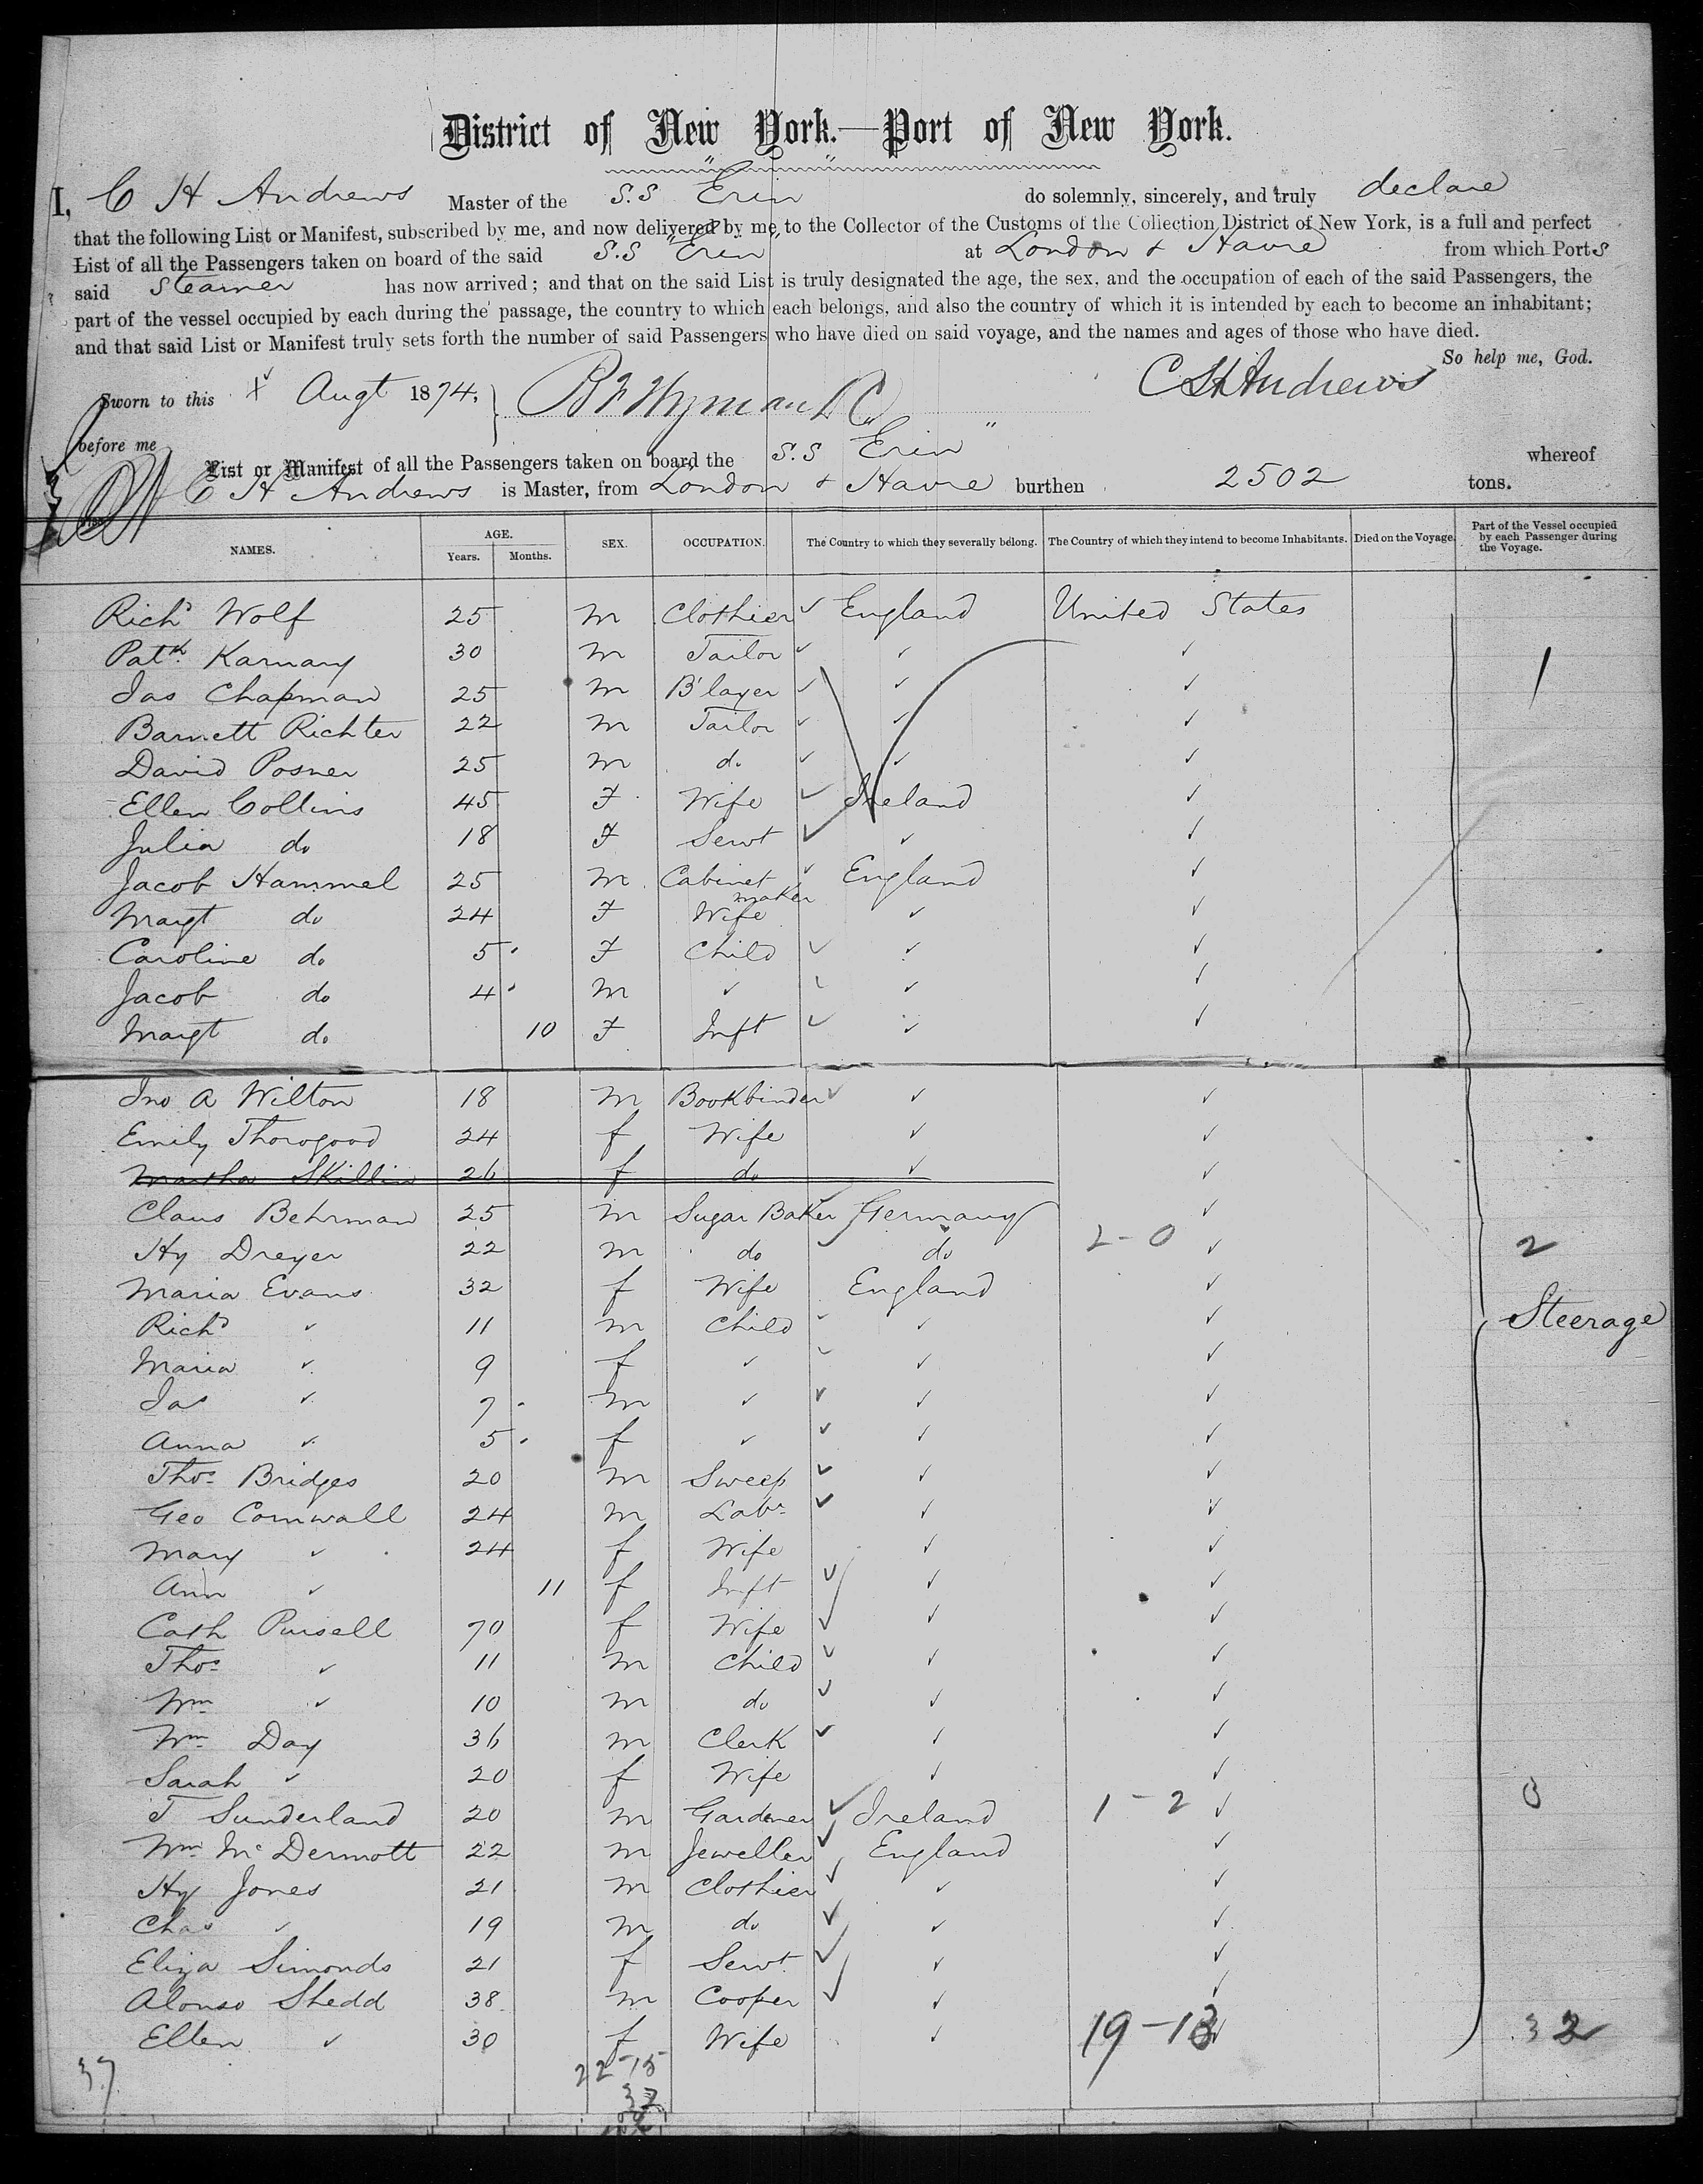 District of New York.—Port of New York.
I, C H Andrews Master of the S.S "Erin" do solemnly, sincerely, and truly declare
that the following List or Manifest, subscribed by me, and now delivered by me to the Collector of the Customs of the Collection District of New York, is a full and perfect
List of all the Passengers taken on board of the said S.S "Erin" at London & Havre from which Ports
said Steamer has now arrived; and that on the said List is truly designated the age, the sex, and the occupation of each of the said Passengers, the
part of the vessel occupied by each during the passage, the country to which each belongs, and also the country of which it is intended by each to become an inhabitant;
and that said List or Manifest truly sets forth the number of said Passengers who have died on said voyage, and the names and ages of those who have died.
So help me, God.
Sworn to this Augt 1874. C H Andrews
before me
List or Manifest of all the Passengers taken on board the S.S "Erin" whereof
C H Andrews is Master, from London & Havre burthen 2502 tons.
NAMES. AGE. Years. Months. SEX. OCCUPATION. The Country to which they severally belong. The Country of which they intend to become Inhabitants. Died on the Voyage. Part of the Vessel occupied by each Passenger during the Voyage.
Richd Wolf 25 m Clothier ✓ England United States
Patk Karnany 30 m Tailor ✓ ✓ ✓ 1
Jas Chapman 25 m B'layer ✓ ✓ ✓
Barnett Richter 22 m Tailor ✓ ✓ ✓
David Posner 25 m do ✓ ✓ ✓
Ellen Collins 45 F Wife ✓ Ireland ✓
Julia do 18 F Sewt ✓ ✓ ✓
Jacob Hammel 25 m Cabinet maker ✓ England ✓
Margt do 24 F Wife ✓ ✓
Caroline do 5 F Child ✓ ✓ ✓
Jacob do 4 m ✓ ✓ ✓ ✓
Margt do 10 F Inft ✓ ✓ ✓
Jno A Wilton 18 m Bookbinder ✓ ✓ ✓
Emily Thorogood 24 f Wife ✓ ✓
Martha Skillin 26 f do ✓ ✓
Claus Behrman 25 m Sugar Baker Germany ✓
Hy Dreyer 22 m do ✓ do 2-0 ✓ 2
Maria Evans 32 f Wife England ✓
Richd ✓ 11 m Child ✓ ✓ ✓ Steerage
Maria ✓ 9 f ✓ ✓ ✓ ✓
Jas ✓ 7 m ✓ ✓ ✓ ✓
Anna ✓ 5 f ✓ ✓ ✓ ✓
Thos Bridges 20 m Sweep ✓ ✓ ✓
Geo Cornwall 24 m Labr ✓ ✓ ✓
Mary ✓ 24 f Wife ✓ ✓
Ann ✓ 11 f Inft ✓ ✓ ✓
Cath Pursell 70 f Wife ✓ ✓ ✓
Thos ✓ 11 m Child ✓ ✓ ✓
Wm ✓ 10 m do ✓ ✓ ✓
Wm Day 36 m Clerk ✓ ✓ ✓
Sarah ✓ 20 f Wife ✓ ✓
T Sunderland 20 m Gardener ✓ Ireland 1-2 ✓
Wm McDermott 22 m Jeweller ✓ England ✓
Hy Jones 21 m Clothier ✓ ✓ ✓
Chas ✓ 19 m do ✓ ✓ ✓
Eliza Simonds 21 f Sewt ✓ ✓ ✓
Alonso Shedd 38 m Cooper ✓ ✓ ✓
Ellen ✓ 30 f Wife ✓ 19-13 32
37 22-15